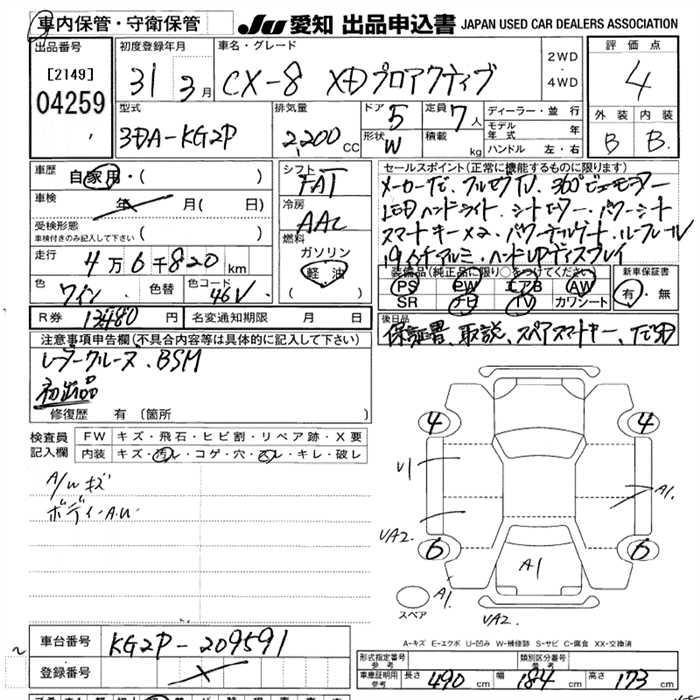 車内保管・守衛保管
JU 愛知 出品申込書 JAPAN USED CAR DEALERS ASSOCIATION
出品番号
[2149]
04259
初度登録年月
31 3月
車名・グレード
CX-8 XDプロアクティブ
2WD
・
4WD
評価点
4
外装 内装
B B
型式
3DA-KG2P
排気量
2,200 CC
ドア 5
形状 W
定員 7人
積載 kg
ディーラー・並行
モデル年式 年
ハンドル 左・右
車歴 自家用・( )
車検 年 月( 日)
受検形態
車検付きのみ記入して下さい ( )
走行 4万6千820km
色 ワイン 色替 色コード 46V
シフト
FAT
冷房
AAC
燃料
ガソリン
軽油
セールスポイント(正常に機能するものに限ります)
メーカーナビ.フルセグTV.360°ビューモニター
LEDヘッドライト.シートヒーター.パワーシート
スマートキー×2.パワーテールゲート.ルーフレール
19インチアルミ.ヘッドUPディスプレイ
装備品(純正品に限り○をつけてください)
PS PW エアB AW
SR ナビ TV カワシート
新車保証書
有・無
R券 13480円 名変通知期限 月 日
後日品
保証書、取説、スペアスマートキー、
注意事項申告欄(不具合内容等は具体的に記入して下さい)
レーダークルーズ、BSM
初出品
修復歴 有(箇所 )
検査員記入欄
FW キズ・飛石・ヒビ割・リペア跡・X要
内装 キズ・汚レ・コゲ・穴・スレ・キレ・破レ
A/W キズ
ボディーA.U
4 4
U1
A1.
UA2.
6 6
A1
A1.
スペア
UA2.
A-キズ E-エクボ U-凹み W-補修跡 S-サビ C-腐食 XX-交換済
車台番号 KG2P-209591
登録番号
形式指定番号 参考
類別区分番号 参考
車庫証明用 参考 長さ 490cm 幅 184cm 高さ 173cm